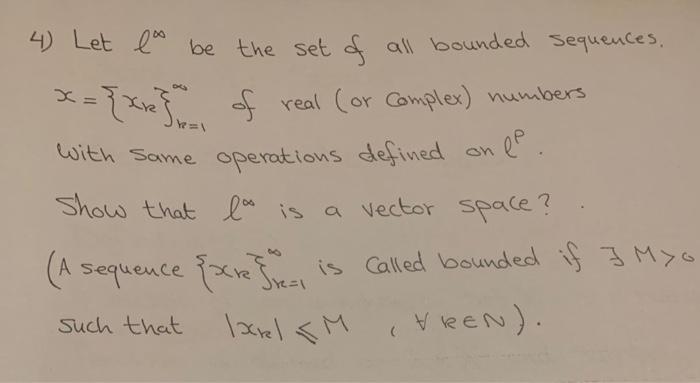 4) Let l^∞ be the set of all bounded sequences.
x = {x_k}_{k=1}^∞ of real (or Complex) numbers
with same operations defined on l^p.
Show that l^∞ is a vector space?
(A sequence {x_k}_{k=1}^∞ is called bounded if ∃ M>0
such that |x_k| ≤ M , ∀ k∈N).